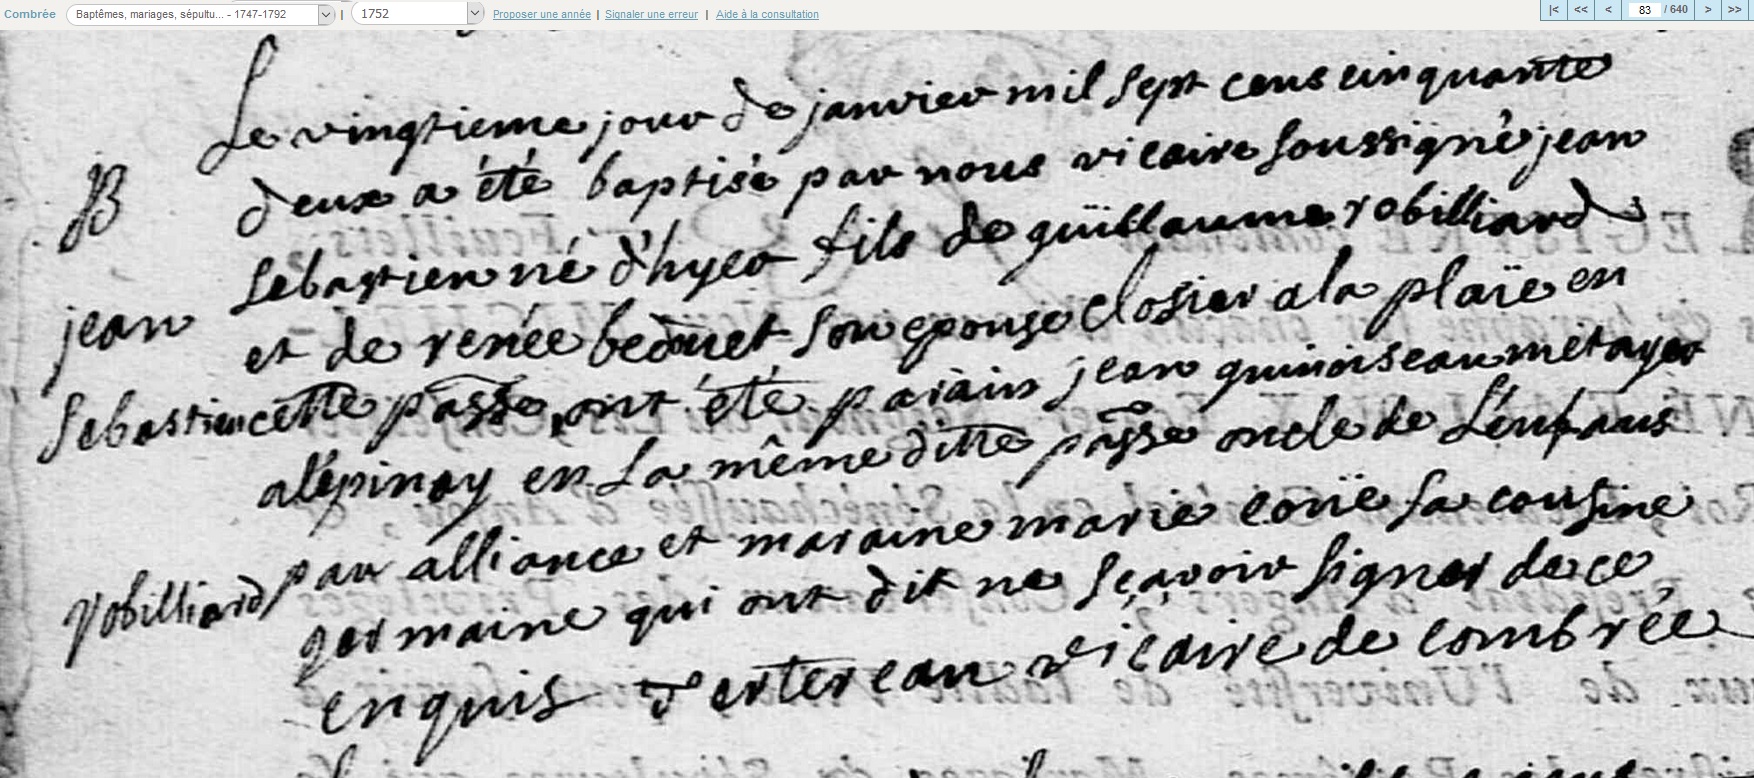 Combrée Baptêmes, mariages, sépultu... - 1747-1792 | 1752 Proposer une année | Signaler une erreur | Aide à la consultation |< << < 83 / 640 > >>
Le vingtieme jour de janvier mil sept cens cinquante
B
deux a été baptisé par nous vicaire soussigné jean
sebastien né d'hyer fils de guillaume robilliard
jean
et de renée beduet son epouse closier a la plaïe en
Sebastien
cette pâsse, ont été parain jean guinoiseau métayer
alépinay en la même ditte pâsse oncle de L'enfans
par alliance et maraine marie coüe sa cousine
robilliard
germaine qui ont dit ne sçavoir signer de ce
enquis d'ertereau vicaire de combrée